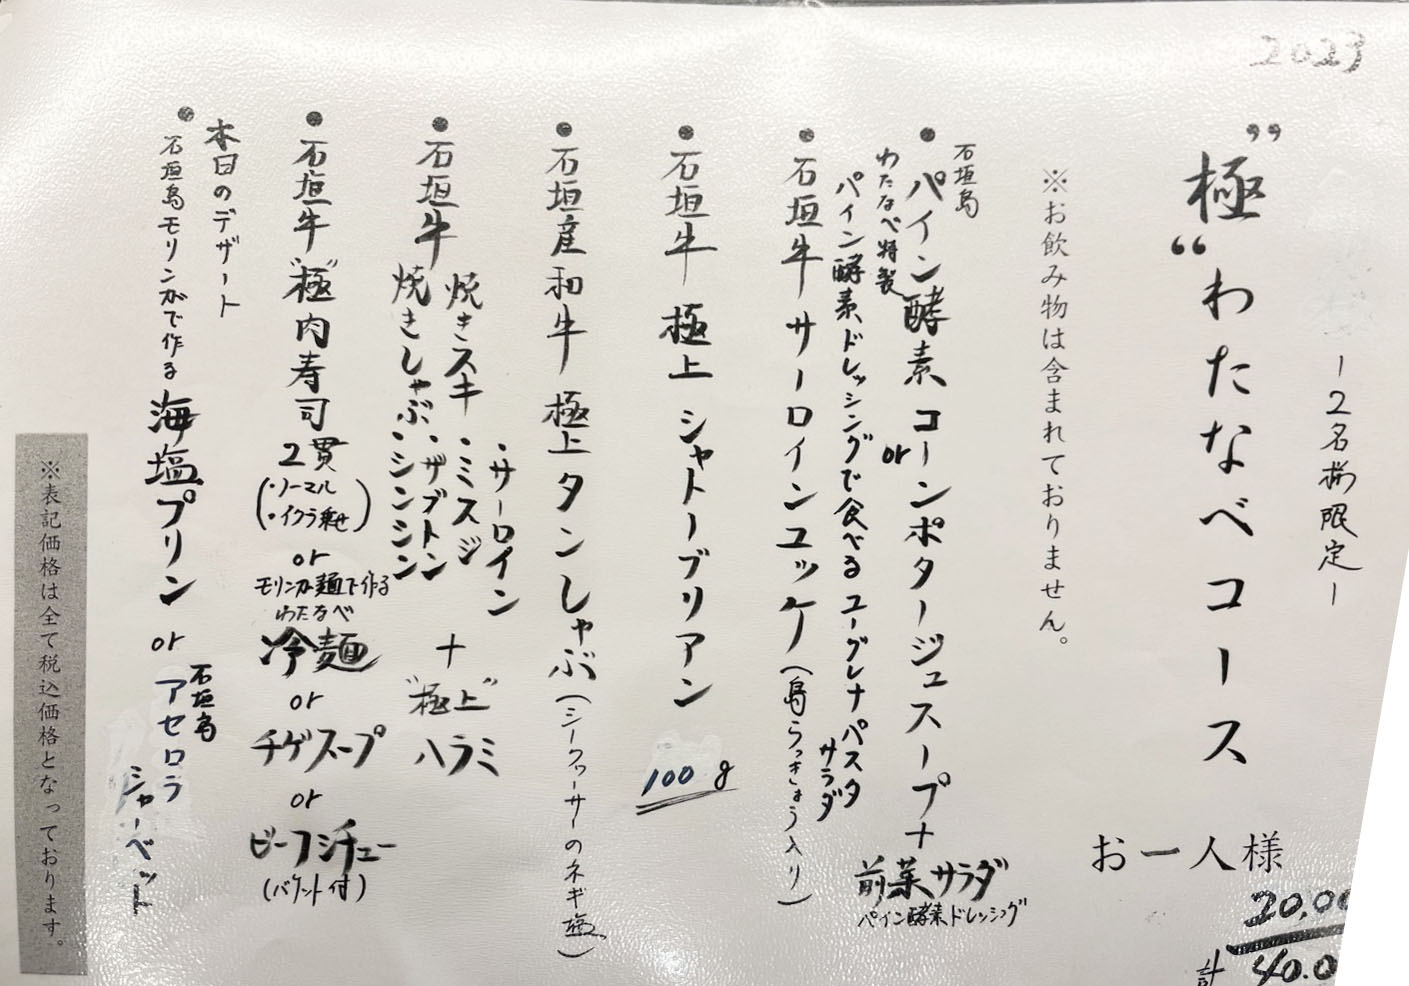 2023
−2名様限定−
”極“わたなべコース
お一人様
20,00
計 40.0
※お飲み物は含まれておりません。
石垣島
●パイン酵素コーンポタージュスープ+
前菜サラダ
パイン酵素ドレッシング
or
わたなべ特製
パイン酵素ドレッシングで食べるユーグレナパスタ
サラダ
●石垣牛サーロインユッケ(島らっきょう入り)
●石垣牛 極上 シャトーブリアン
100g
●石垣産和牛 極上タンしゃぶ(シークヮーサーのネギ塩)
●石垣牛
焼きスキ
焼きしゃぶ
・サーロイン
・ミスジ
・ザブトン
・シンシン
+
"極上"
ハラミ
●石垣牛"極"肉寿司
2貫
(・ノーマル
・イクラ乗せ)
or
モリンガ麺で作る
わたなべ
冷麺
or
チゲスープ
or
ビーフシチュー
(バケット付)
本日のデザート
●石垣島モリンガで作る 海塩プリン
or
石垣島
アセロラ
シャーベット
※表記価格は全て税込価格となっております。